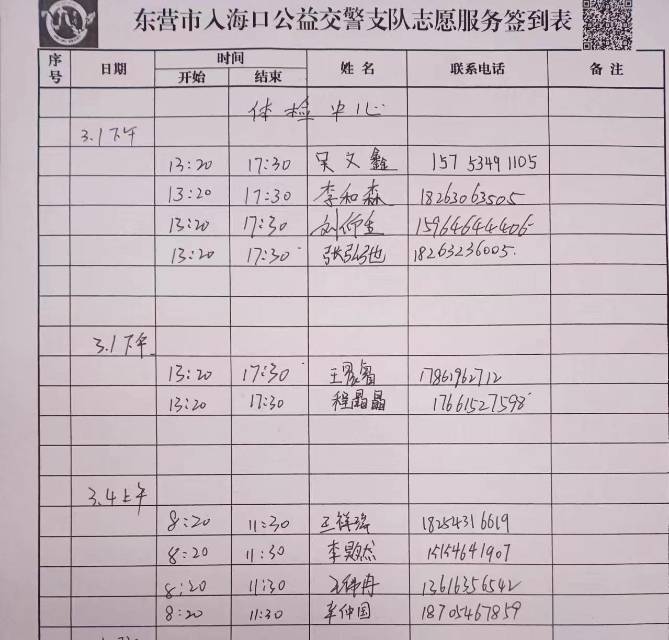 东营市入海口公益交警支队志愿服务签到表
序号 日期 时间 开始 结束 姓名 联系电话 备注
体检中心
3.1下午
13:20 17:30 吴文鑫 157 5349 1105
13:20 17:30 李和森 18263063505
13:20 17:30 刘仰生 15964644406
13:20 17:30 张弘弛 18263236005.
3.1下午
13:20 17:30 17861962712
13:20 17:30 程晶晶 17661527598
3.4上午
8:20 11:30 王祥瑞 18254316619
8:20 11:30 15154641907
8:20 11:30 13616356542
8:20 11:30 李仲国 18705467859